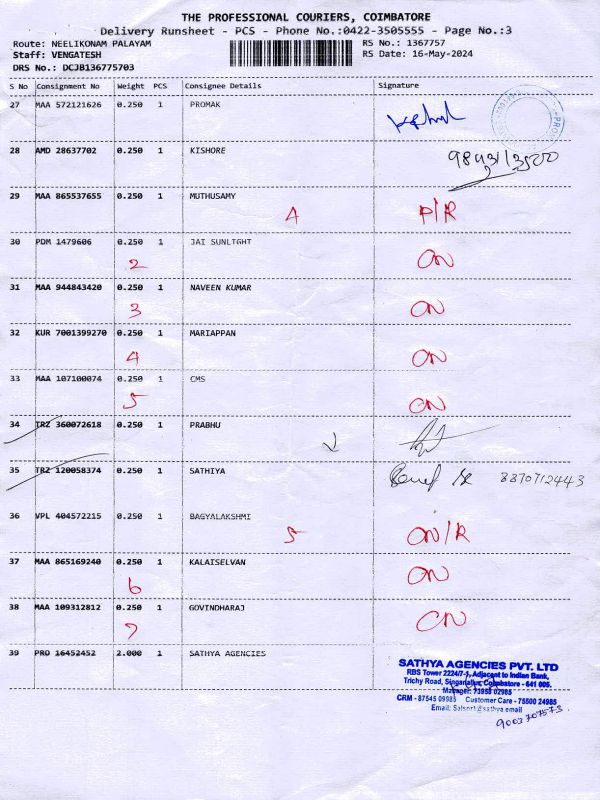 THE PROFESSIONAL COURIERS, COIMBATORE
Delivery Runsheet - PCS - Phone No.:0422-3505555 - Page No.:3
Route: NEELIKONAM PALAYAM RS No.: 1367757
Staff: VENGATESH RS Date: 16-May-2024
DRS No.: DCJB136775703
S No Consignment No Weight PCS Consignee Details Signature
27 MAA 572121626 0.250 1 PROMAK
28 AMD 28637702 0.250 1 KISHORE
29 MAA 865537655 0.250 1 MUTHUSAMY
4 P/R
30 PDM 1479606 0.250 1 JAI SUNLIGHT
2 ON
31 MAA 944843420 0.250 1 NAVEEN KUMAR
3 ON
32 KUR 7001399270 0.250 1 MARIAPPAN
4 ON
33 MAA 107100074 0.250 1 CMS
5 ON
34 TRZ 360072618 0.250 1 PRABHU
35 TRZ 120058374 0.250 1 SATHIYA
8870712443
36 VPL 404572215 0.250 1 BAGYALAKSHMI
5 ON/R
37 MAA 865169240 0.250 1 KALAISELVAN
6 ON
38 MAA 109312812 0.250 1 GOVINDHARAJ
7 ON
39 PRO 16452452 2.000 1 SATHYA AGENCIES
SATHYA AGENCIES PVT. LTD
RBS Tower 2224/7-1, Adjacent to Indian Bank,
Trichy Road, Singanallur, Coimbatore - 641 005.
Manager: 73958 02985
CRM - 87545 09985 Customer Care - 75500 24985